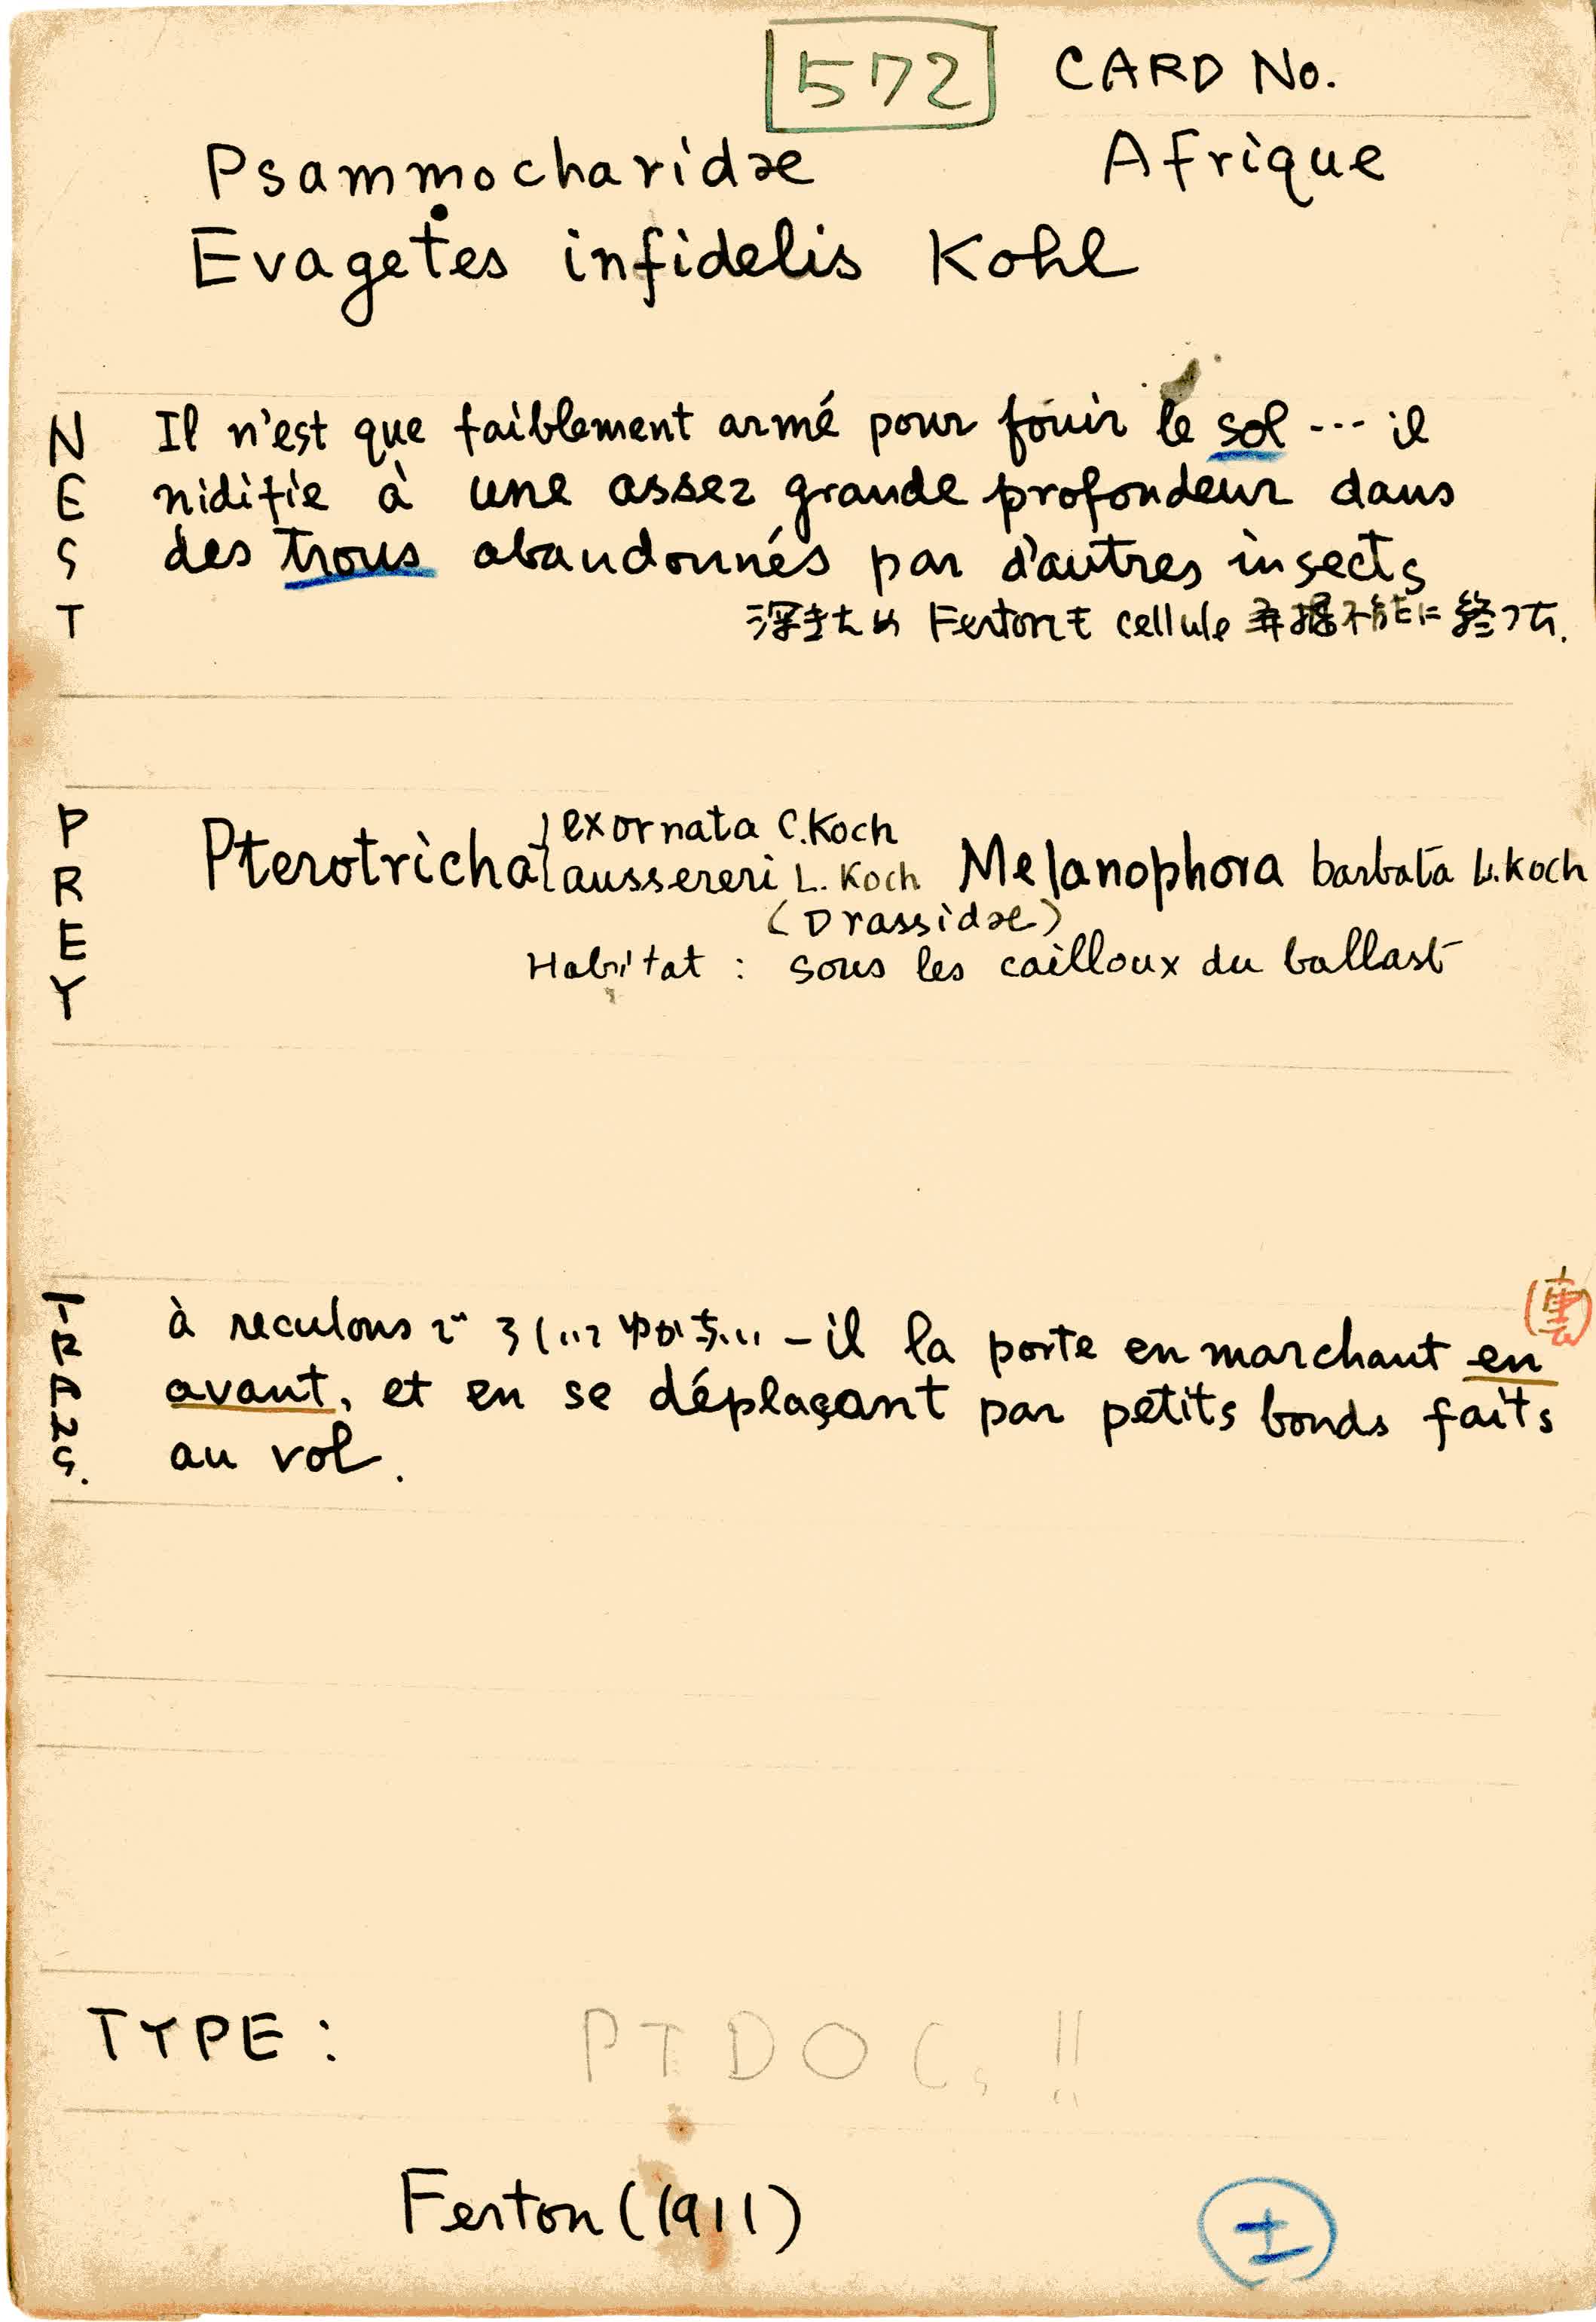 572 CARD No.
Psammocharidae Afrique
Evagetes infidelis Kohl
NEST
Il n'est que faiblement armé pour fouir le sol … il
nidifie à une assez grande profondeur dans
des trous abandonnés par d'autres insects
深きため Fertonモ cellule 発掘不能に終った.
PREY
exornata C.Koch
Pterotricha aussereri L. Koch Melanophora barbata L.Koch
(Drassidae)
Habitat : sous les cailloux du ballast
TRANS.
à reculons で ひいて ゆかない – il la porte en marchant en
avant, et en se déplaçant par petits bonds faits
au vol.
TYPE : PTDOC, !!
Ferton (1911) ±